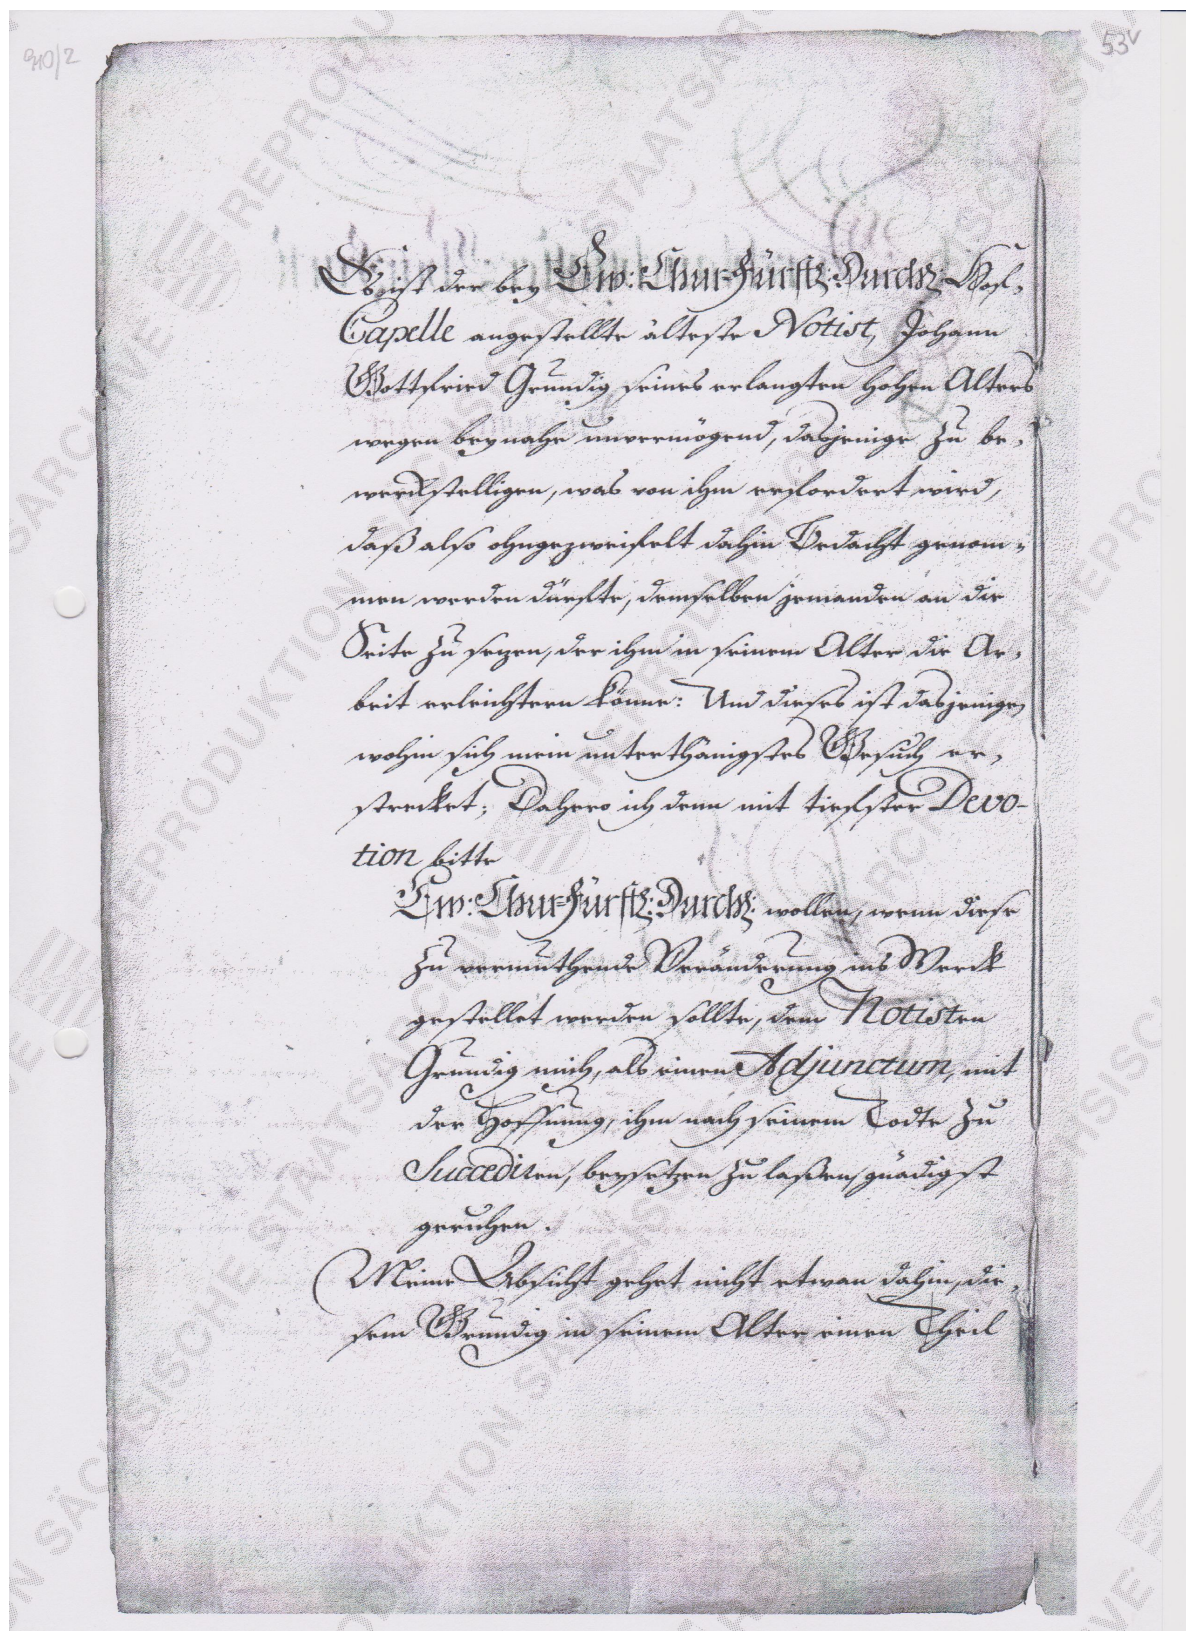 910/2
53v
Es ist der bey Ew: Chur-Fürstl: Durchl: Hof-
Capelle angestellte älteste Notist, Johann
Gottfried Grundig seines erlangten hohen Alters
wegen beynahe unvermögend, dasjenige zu be-
werckstelligen, was von ihm erfordert wird,
daß also ohngezweifelt dahin Bedacht genom-
men werden dürfte, demselben jemanden an die
Seite zu sezen, der ihm in seinem Alter die Ar-
beit erleichtern könne: Und dieses ist dasjenige,
wohin sich mein unterthänigstes Gesuch er-
strecket; Dahero ich denn mit tiefster Devo-
tion bitte
Ew: Chur-Fürstl: Durchl: wollen, wenn diese
zu vermuthende Veränderung ins Werck
gestellet werden sollte, dem Notisten
Grundig mich, als einen Adjunctum, mit
der Hoffnung, ihm nach seinem Todte zu
Succediren, beysetzen zu laßen, gnädigst
geruhen.
Meine Absicht gehet nicht etwan dahin, die-
sem Grundig in seinem Alter einen Theil
REPRODUKTION SÄCHSISCHE STAATSARCHIVE